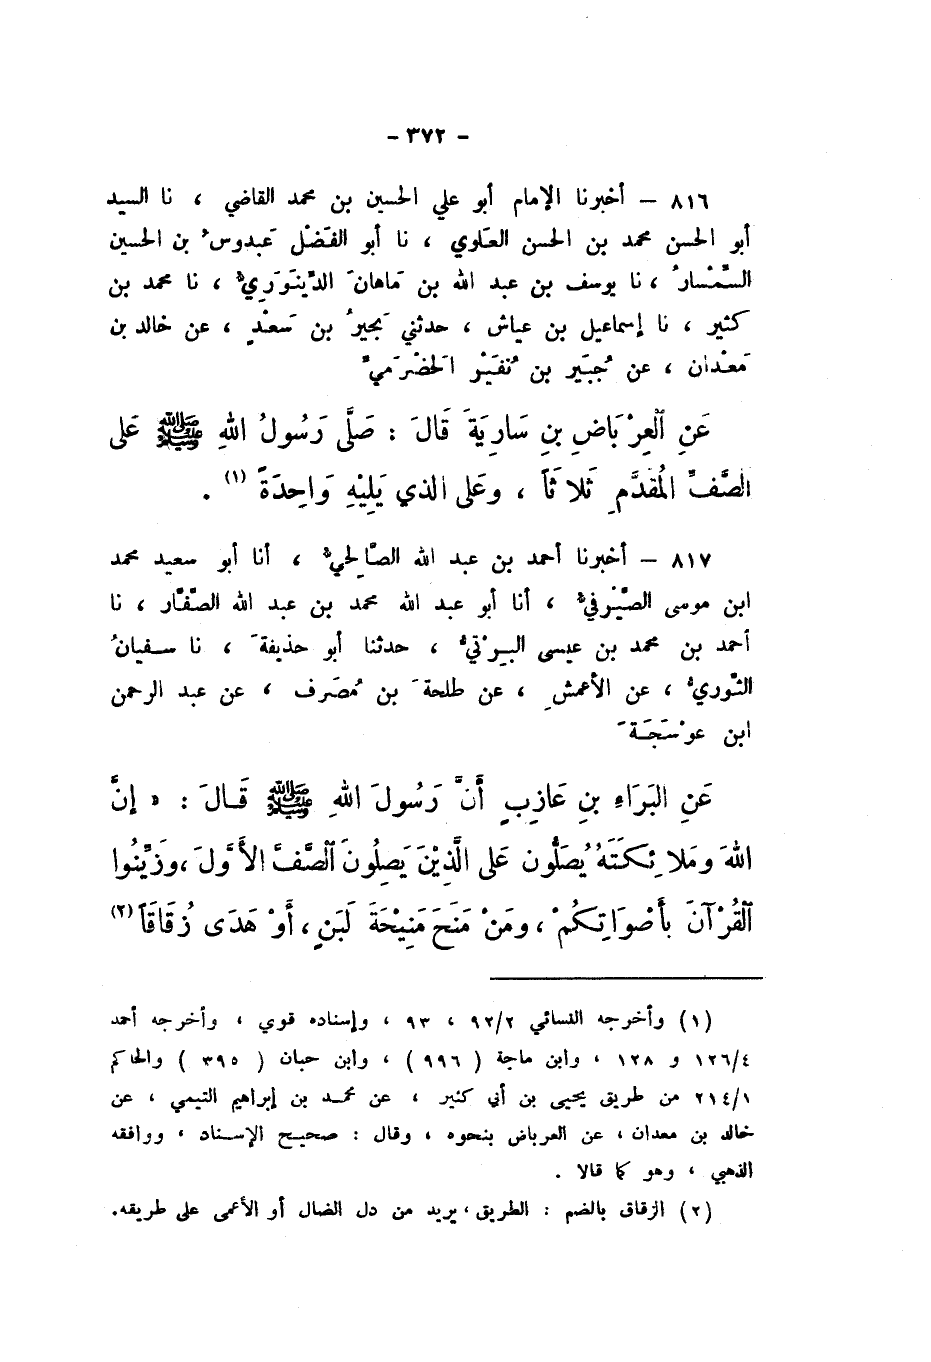 - ٣٧٢ -
٨١٦ - أخبرنا الإمام أبو علي الحسين بن محمد القاضي ، نا السيد
أبو الحسن محمد بن الحسن العلوي ، نا أبو الفَضْل عَبدوسُ بن الحسين
السِّمْسارُ ، نا يوسف بن عبد الله بن مَاهانَ الدِّينَوَرِيُّ ، نا محمد بن
كثير ، نا إسماعيل بن عياش ، حدثني بَحيرُ بن سَعْدٍ ، عن خالد بن
مَعْدان ، عن جُبَير بن نُفَيْر الحَضْرَميِّ
عَنِ ٱلعِرْبَاضِ بنِ سَارِيَةَ قَالَ : صَلَّى رَسُولُ اللهِ ﷺ عَلى
الصَّفِّ المُقدَّمِ ثَلاثاً ، وعَلى الذي يَلِيْهِ وَاحِدَةً (١) .
٨١٧ - أخبرنا أحمد بن عبد الله الصَّالحيُّ ، أنا أبو سعيد محمد
ابن موسى الصَّيْرفيُّ ، أنا أبو عبد الله محمد بن عبد الله الصَّفَّار ، نا
أحمد بن محمد بن عيسى البِرْتيُّ ، حدثنا أبو حذيفةَ ، نا سفيانُ
الثَّوريُّ ، عن الأعمشِ ، عن طلحةَ بن مُصَرف ، عن عبد الرحمن
ابن عوْسَجَةَ
عَنِ البَرَاءِ بنِ عَازِبٍ أَنَّ رَسُولَ اللهِ ﷺ قَالَ : « إنَّ
اللهَ ومَلائِكَتَهُ يُصَلُّون عَلى الَّذِيْنَ يَصِلُونَ ٱلصَّفَّ الأَوَّلَ ، وَزَيِّنُوا
ٱلقُرْآنَ بأَصْوَاتِكُمْ ، ومَنْ مَنَحَ مَنِيْحَةَ لَبَنٍ ، أَوْ هَدَى زُقَاقَاً (٢)
(١) وأخرجه النسائي ٩٢/٢ ، ٩٣ ، وإسناده قوي ، وأخرجه أحمد
١٢٦/٤ و ١٢٨ ، وابن ماجة ( ٩٩٦ ) ، وابن حبان ( ٣٩٥ ) والحاكم
٢١٤/١ من طريق يحيى بن أبي كثير ، عن محمد بن إبراهيم التيمي ، عن
خالد بن معدان ، عن العرباض بنحوه ، وقال : صحيح الإسناد ، ووافقه
الذهبي ، وهو كما قالا .
(٢) الزقاق بالضم : الطريق ، يريد من دل الضال أو الأعمى على طريقه.